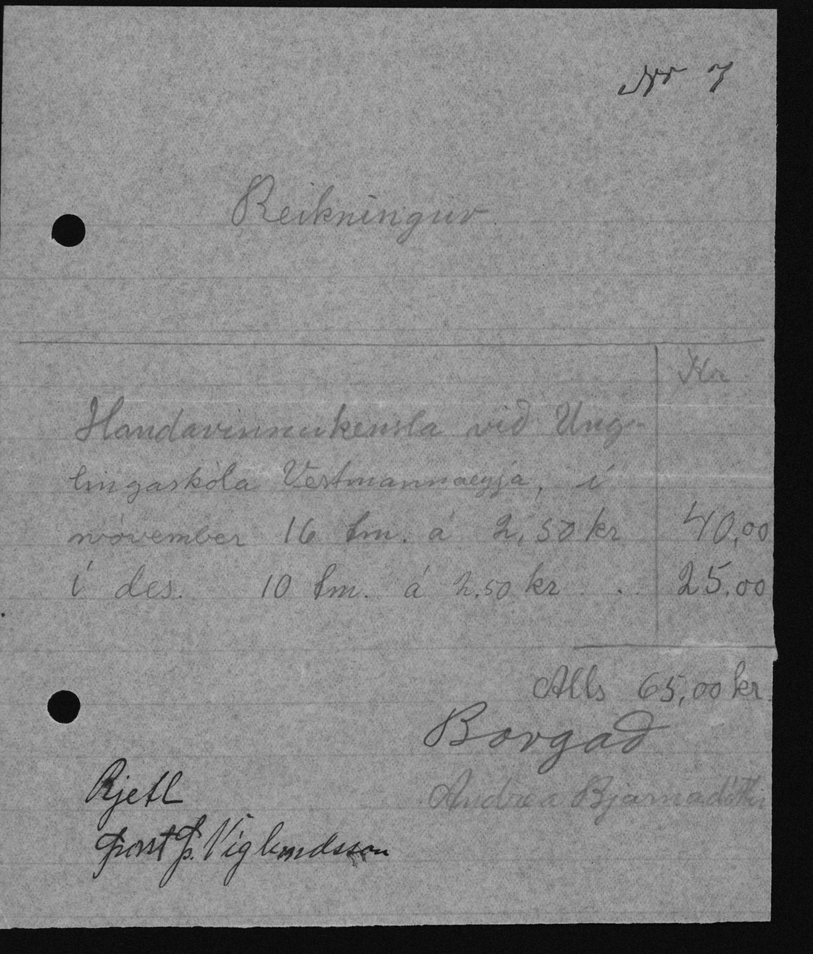 Nr 7
Reikningur
Kr
Handavinnukensla við Ung-
lingaskóla Vestmannaeyja, í
nóvember 16 tm. á 2,50 kr 40,00
í des. 10 tm. á 2.50 kr . . 25.00
Alls 65,00 kr.
Borgað
Andrea Bjarnadóttir
Rjett
Þorst Þ. Víglundsson